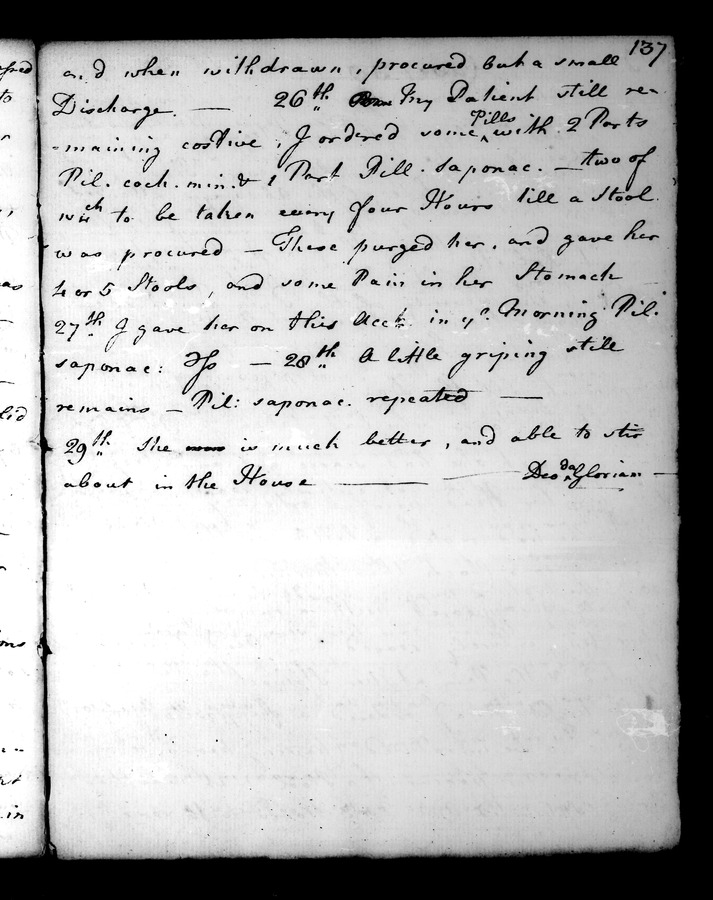 137
and when withdrawn, procured but a small
Discharge. — 26th My Patient still re-
-maining costive, I ordered some Pills with 2 Parts
Pil. coch. min. & 1 Part Pill. saponac. — two of
wch to be taken every four Hours till a Stool
was procured — These purged her, and gave her
4 or 5 Stools, and some Pain in her Stomach
27th I gave her on this Acct. in ye. Morning Pil.
saponac: — 28th A little griping still
remains — Pil: saponac. repeated —
29th She is much better, and able to stir
about in the House — Deo da Gloriam —